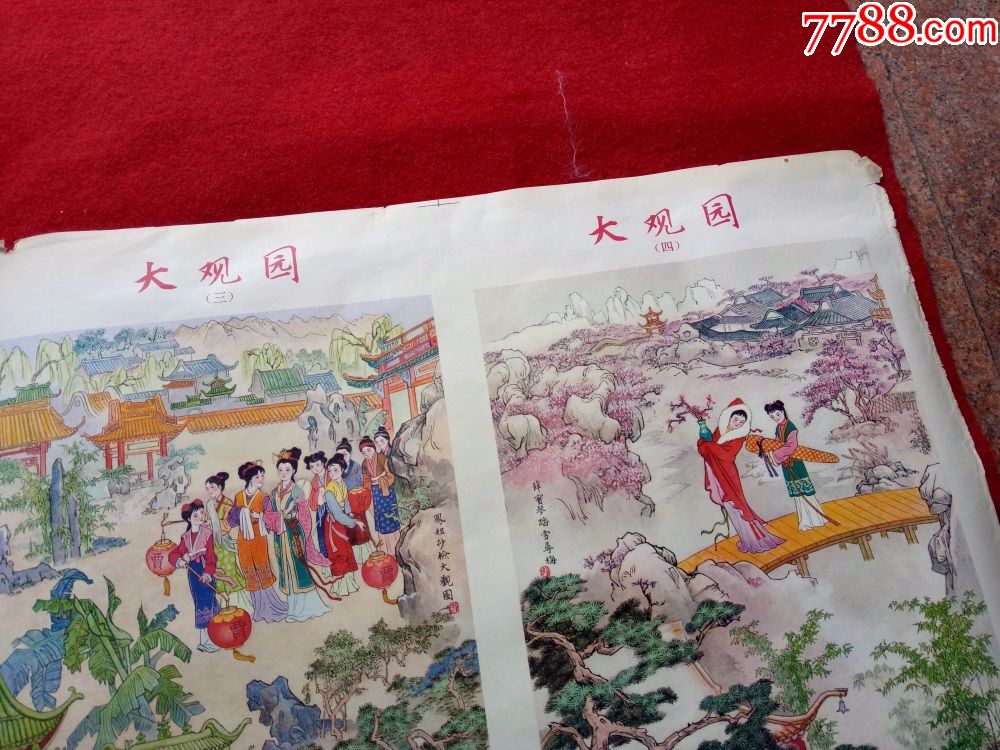 7788.com
大观园
(三)
大观园
(四)
鳳姐抄檢大觀園
薛寳琴踏雪尋梅
賈